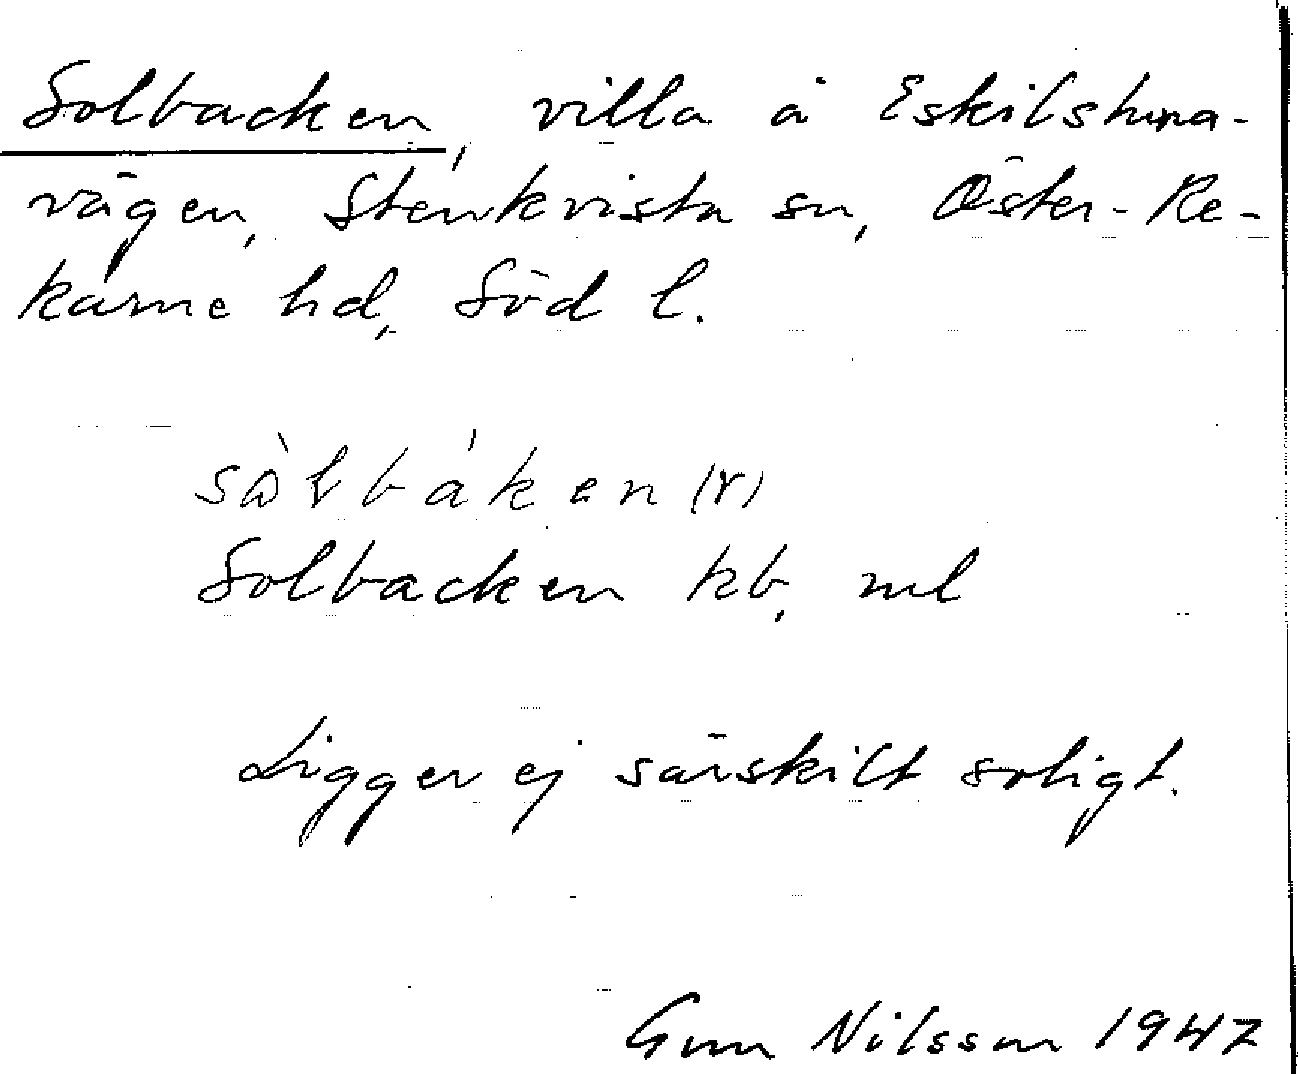 Solbacken, villa å Eskilstuna-
vägen, Stenkvista sn, Öster-Re-
karne hd, Söd l.
sὼlbáken (r)
Solbacken kb, ml
Ligger ej särskilt soligt.
Gun Nilsson 1947